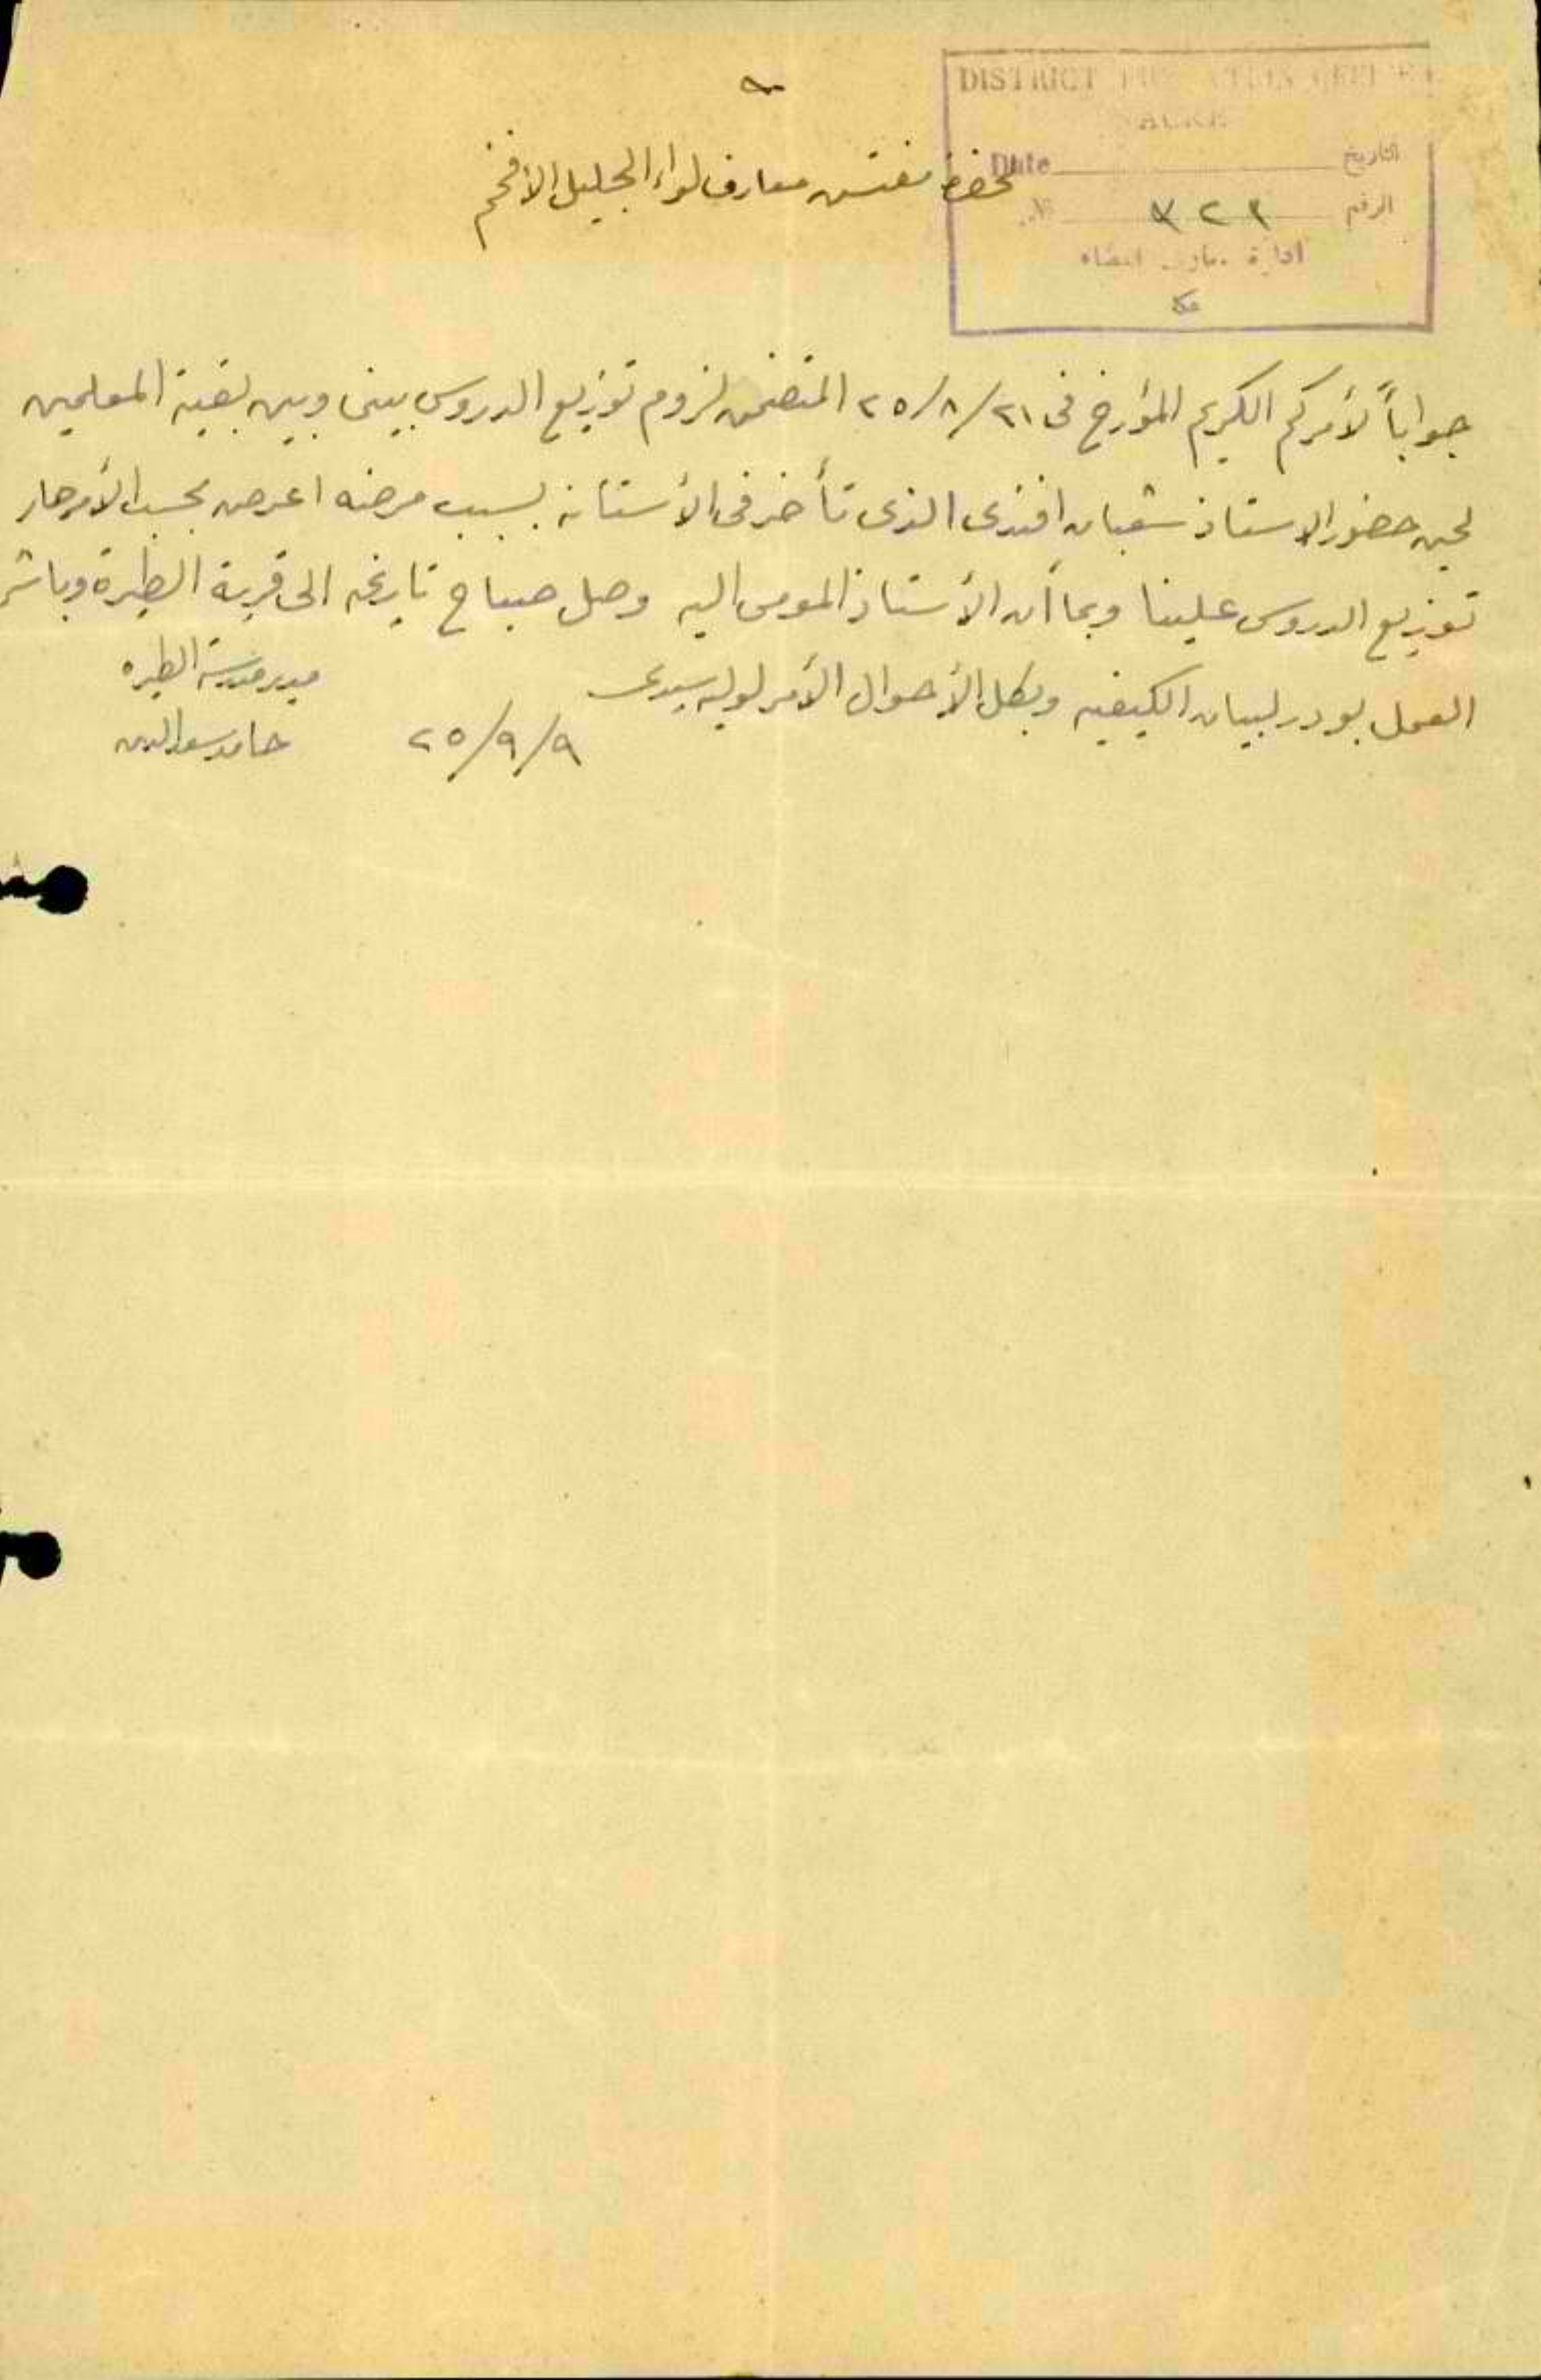 DISTRICT
ACRE
Date التاريخ
No. ٣٢٢ الرقم
ادارة معارف القضاء
عكا
لحضرة مفتش معارف لواء الجليل الأفخم
جواباً لأمركم الكريم المؤرخ فى ٢١/٨/٢٥ المتضمن لزوم توزيع الدروس بينى وبين بقية المعلمين
لحين حضور الاستاذ شعبان افندى الذى تأخر فى الأستانه بسبب مرضه اعرض بحسب الأمر صار
توزيع الدروس علينا وبما أن الأستاذ المومى اليه وصل صباح تاريخه الى قرية الطيرة وباشر
العمل بودر لبيان الكيفيه وبكل الأحوال الأمر لوليه سيدى
مدير مدرسة الطيره
٩/٩/٢٥
حامد سعد الدين